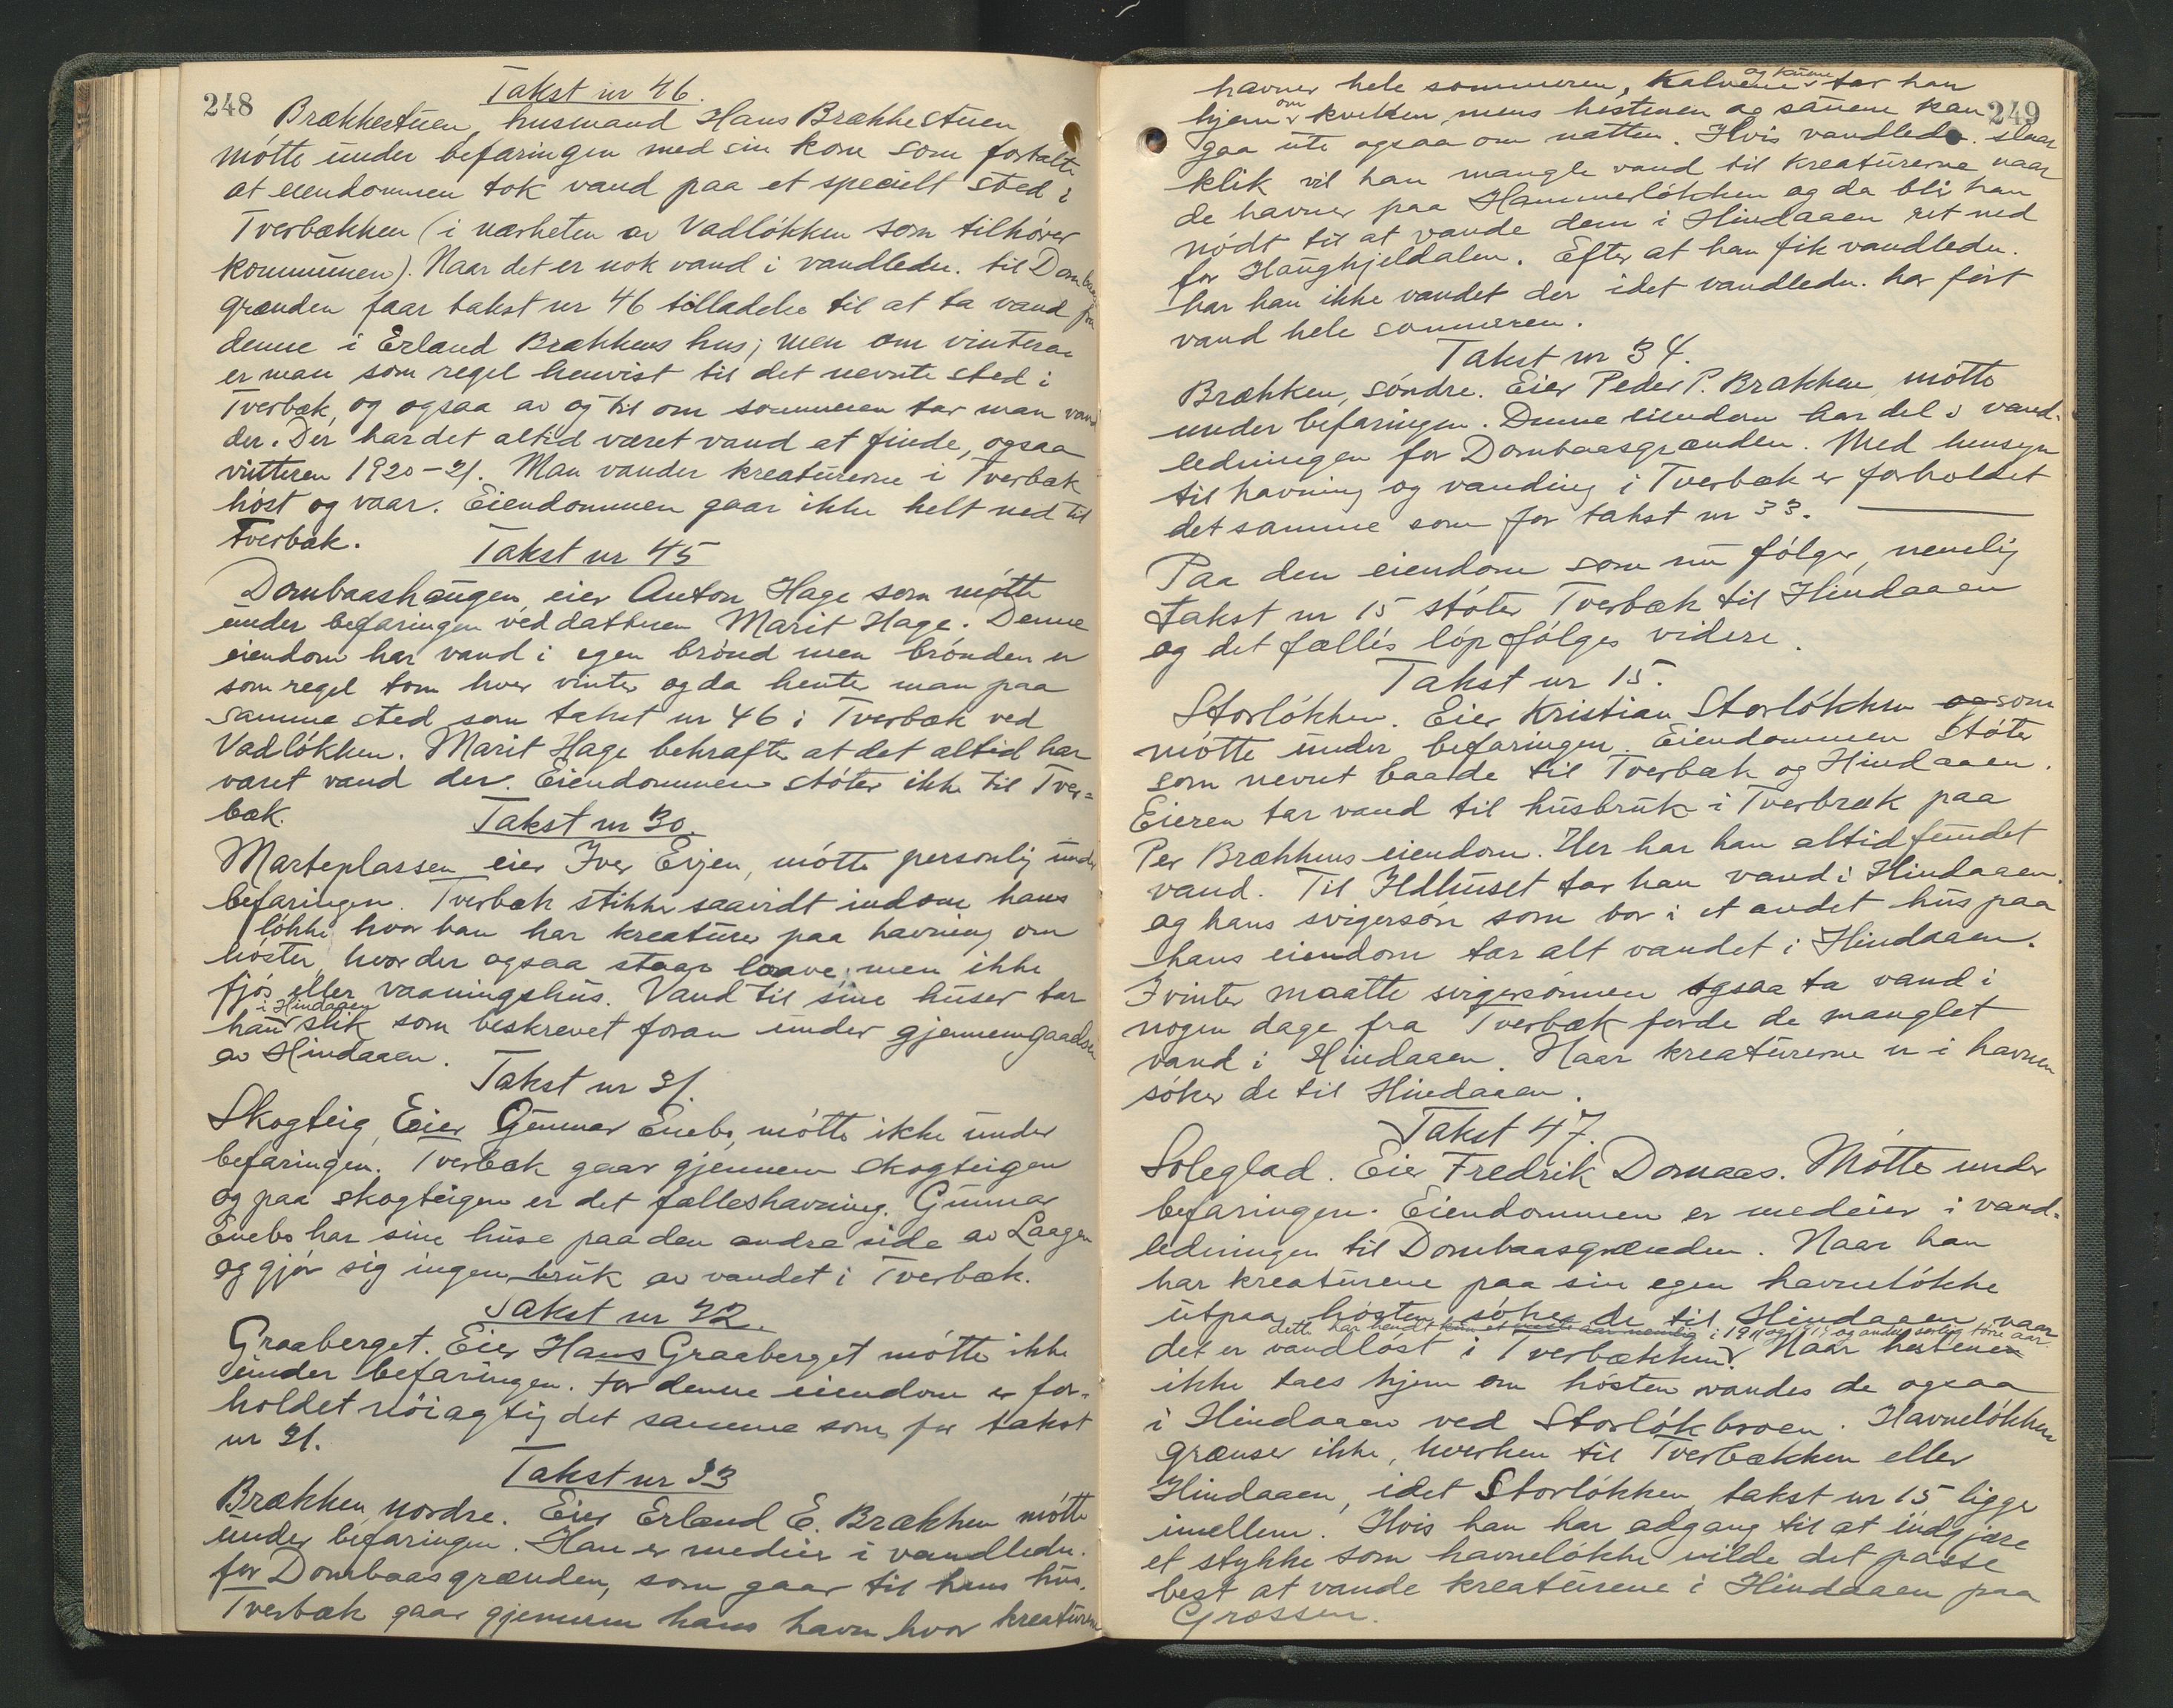 248
Takst nr 46.
Brækkestuen, husmand Hans Brækkestuen
møtte under befaringen med sin kone som fortalte
at eiendommen tok vand paa et specielt sted i
Tverbækken (i nærheten av Vadløkken som tilhører
kommunen). Naar det er nok vand i vandledn. til Dombaas
grænden faar takst nr 46 tilladelse til at ta vand fra
denne i Erland Brækkens hus; men om vinteren
er man som regel henvist til det nevnte sted i
Tverbæk, og ogsaa av og til om sommeren tar man vand
der. Der har det altid været vand at finde, ogsaa
vinteren 1920-21. Man vander kreaturerne i Tverbæk
høst og vaar. Eiendommen gaar ikke helt ned til
Tverbæk.
Takst nr 45
Dombaashaugen eier Anton Hage som møtte
under befaringen ved datteren Marit Hage. Denne
eiendom har vand i egen brønd men brønden er
som regel tom hver vinter og da henter man paa
samme sted som takst nr 46 i Tverbæk ved
Vadløkken. Marit Hage bekræfter at det altid har
været vand der. Eiendommen støter ikke til Tver=
bæk.
Takst nr 30.
Marteplassen eier Iver Evjen, møtte personlig under
befaringen. Tverbæk stikker saavidt indom hans
løkke hvor han har kreaturer paa havning om
høsten, hvor der ogsaa staar laave; men ikke
fjøs eller vaaningshus. Vand til sine huser tar
han i Hindaaen slik som beskrevet foran under gjennemgaaelsen
av Hindaaen.
Takst nr 31.
Skogteig, Eier Gunnar Enebo, møtte ikke under
befaringen. Tverbæk gaar gjennem skogteigen
og paa skogteigen er det fælleshavning. Gunnar
Enebo har sine huse paa den andre side av Laagen
og gjør sig ingen bruk av vandet i Tverbæk.
Takst nr 32.
Graaberget. Eier Hans Graaberget møtte ikke
under befaringen. For denne eiendom er for-
holdet nöiagtig det samme som for takst
nr 31.
Takst nr 33
Brækken nordre. Eier Erland E. Brækken møtte
under befaringen. Han er medeier i vandledn.
for Dombaasgrænden, som gaar til hans hus.
Tverbæk gaar gjennem hans havn hvor kreaturene
249
havner hele sommeren, Kalvene og kuene tar han
hjem om kvelden, mens hestene og sauene kan
gaa ute ogsaa om natten. Hvis vandledn. slaar
klik vil han mangle vand til kreaturerne naar
de havner paa Hammerløkken og da blir han
nødt til at vande dem i Hindaaen ret ned
for Haughjeldalen. Efter at han fik vandledn.
har han ikke vandet der idet vandledn. har ført
vand hele sommeren.
Takst nr 34.
Brækken, søndre. Eier Peder P. Brækken, møtte
under befaringen. Denne eiendom har del i vand-
ledningen for Dombaasgrænden. Med hensyn
til havning og vanding i Tverbæk er forholdet
det samme som for takst nr 33.
Paa den eiendom som nu følger, nemlig
takst nr 15 støter Tverbæk til Hindaaen
og det fælles løp følges videre.
Takst nr 15.
Storløkken. Eier Kristian Storløkken og som
møtte under befaringen. Eiendommen støter
som nevnt baade til Tverbæk og Hindaaen.
Eieren tar vand til husbruk i Tverbæk paa
Per Brækkens eiendom. Her har han altid fundet
vand. Til Ildhuset tar han vand i Hindaaen.
og hans svigersøn som bor i et andet hus paa
hans eiendom tar alt vandet i Hindaaen.
I vinter maatte svigersønnen ogsaa ta vand i
nogen dage fra Tverbæk fordi de manglet
vand i Hindaaen. Naar kreaturerne er i havnen
søker de til Hindaaen.
Takst 47.
Soleglad. Eier Fredrik Domaas. Møtte under
befaringen. Eiendommen er medeier i vand-
ledningen til Dombaasgrænden. Naar han
har kreaturene paa sin egen havneløkke
utpaa høsten søker de til Hindaaen naar
dette har hendt kun et nemlig i 1911 og 1919 og andre særlig tørre aar
det er vandløst i Tverbækken. Naar hestene
ikke taes hjem om høsten vandes de ogsaa
i Hindaaen ved Storløkbroen. Havneløkken
grænser ikke, hverken til Tverbækken eller
Hindaaen, idet Storløkken takst nr 15 ligger
imellem. Hvis han har adgang til at indgjære
et stykke som havneløkke vilde det passe
best at vande kreaturene i Hindaaen paa
Grossen.